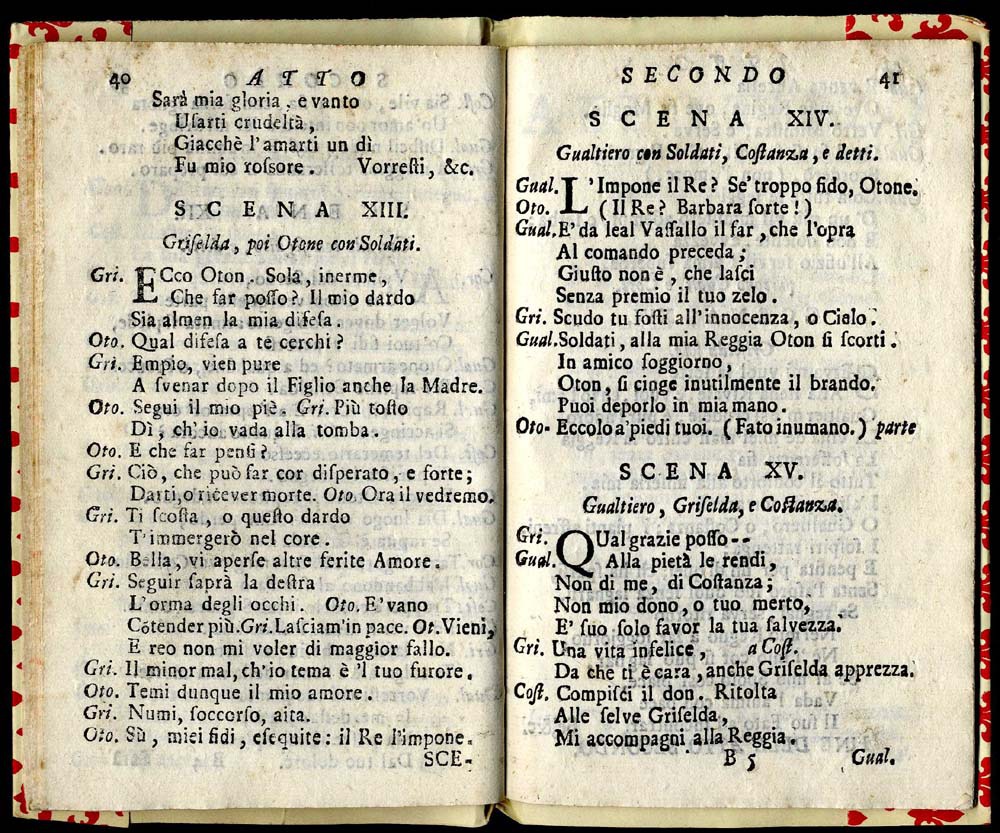 40 ATTO
Sarà mia gloria, e vanto
Uſarti crudeltà,
Giacchè l'amarti un dì
Fu mio roſsore. Vorreſti, &c.
SCENA XIII.
Griſelda, poi Otone con Soldati.
Gri. ECco Oton. Sola, inerme,
Che far poſſo? Il mio dardo
Sia almen la mia difeſa.
Oto. Qual difeſa a te cerchi?
Gri. Empio, vien pure
A ſvenar dopo il Figlio anche la Madre.
Oto. Segui il mio piè. Gri. Più toſto
Dì, ch'io vada alla tomba.
Oto. E che far penſi?
Gri. Ciò, che può far cor diſperato, e forte;
Darti, o ricever morte. Oto. Ora il vedremo.
Gri. Ti ſcoſta, o queſto dardo
T'immergerò nel core.
Oto. Bella, vi aperſe altre ferite Amore.
Gri. Seguir ſaprà la deſtra
L'orma degli occhi. Oto. E' vano
Cõtender più. Gri. Laſciam'in pace. Ot. Vieni,
E reo non mi voler di maggior fallo.
Gri. Il minor mal, ch'io tema è 'l tuo furore.
Oto. Temi dunque il mio amore.
Gri. Numi, ſoccorſo, aita.
Oto. Sù, miei fidi, eſequite: il Re l'impone.
SCE-
SECONDO 41
SCENA XIV.
Gualtiero con Soldati, Coſtanza, e detti.
Gual. L'Impone il Re? Se' troppo fido, Otone.
Oto. (Il Re? Barbara ſorte!)
Gual. E' da leal Vaſſallo il far, che l'opra
Al comando preceda;
Giuſto non è, che laſci
Senza premio il tuo zelo.
Gri. Scudo tu foſti all'innocenza, o Cielo.
Gual. Soldati, alla mia Reggia Oton ſi ſcorti.
In amico ſoggiorno,
Oton, ſi cinge inutilmente il brando.
Puoi deporlo in mia mano.
Oto- Eccolo a' piedi tuoi. (Fato inumano.) parte
SCENA XV.
Gualtiero, Griſelda, e Coſtanza.
Gri. QUal grazie poſſo--
Gual. Alla pietà le rendi,
Non di me, di Coſtanza;
Non mio dono, o tuo merto,
E' ſuo ſolo favor la tua ſalvezza.
Gri. Una vita infelice, a Coſt.
Da che ti è cara, anche Griſelda apprezza.
Coſt. Compiſci il don. Ritolta
Alle ſelve Griſelda,
Mi accompagni alla Reggia.
B 5 Gual.